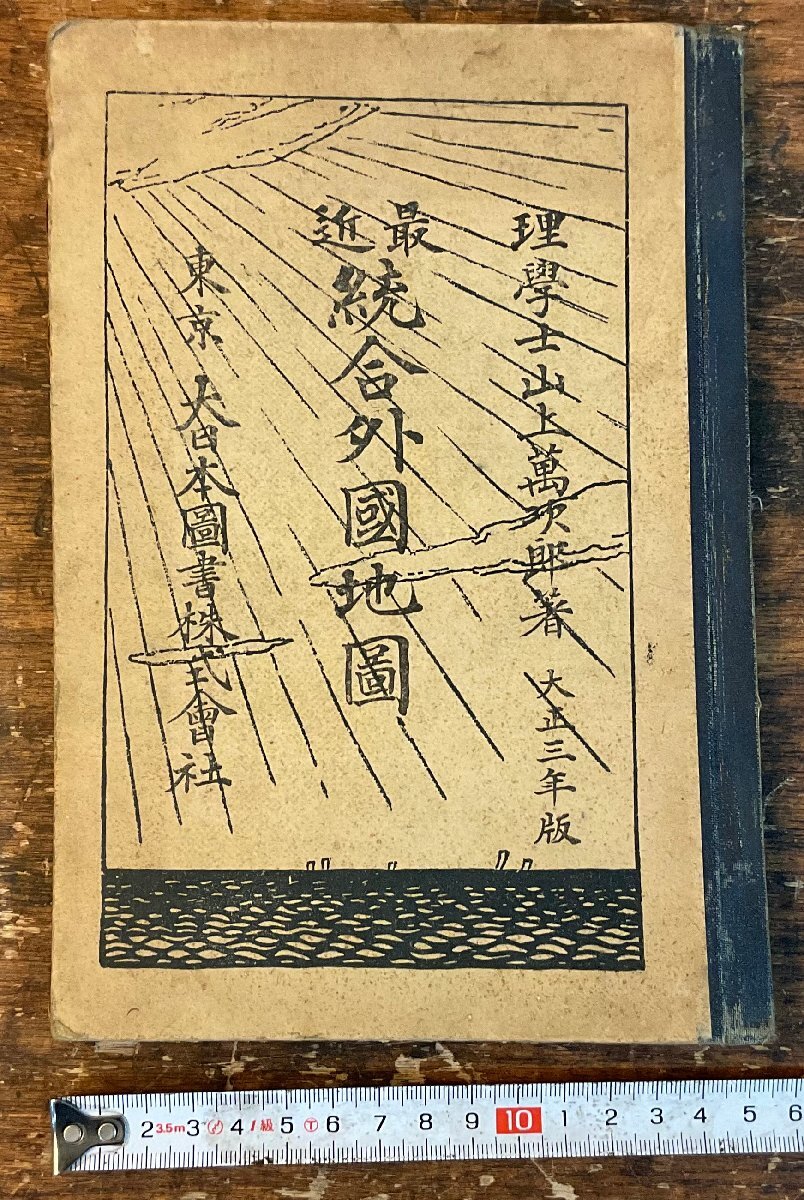 理學士山上萬次郎著 大正三年版
最近
統合外國地圖
東京 大日本圖書株式會社
2 3.5m 3 4 1級 5 6 7 8 9 10 1 2 3 4 5 6